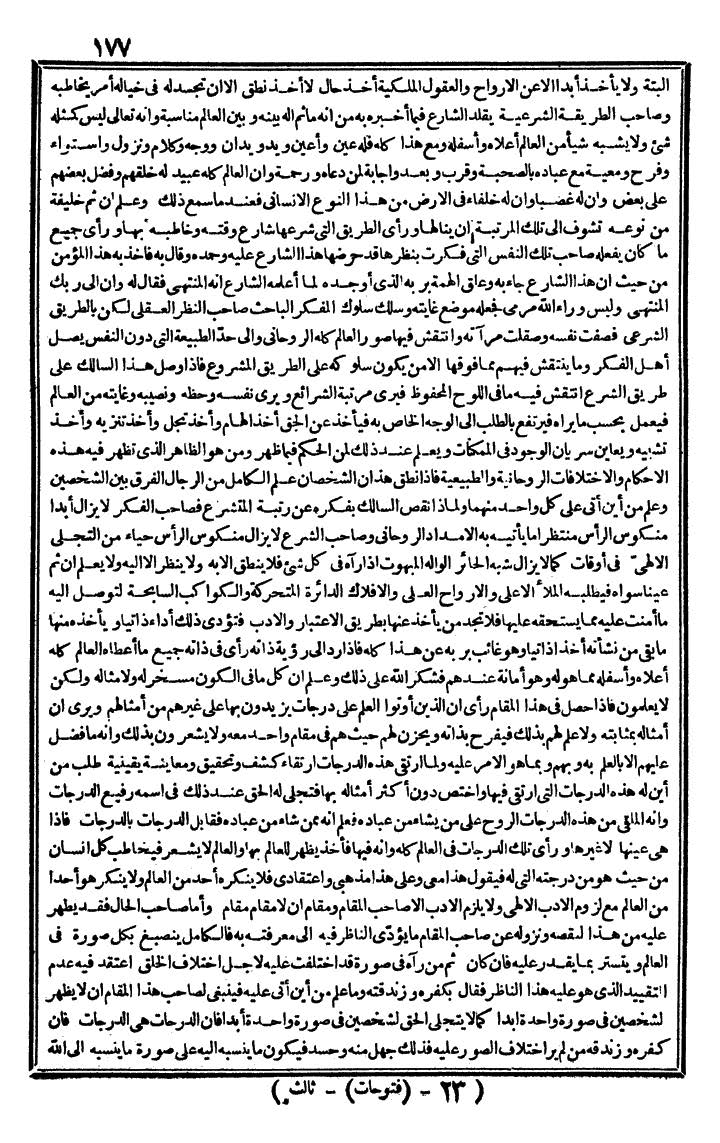 ١٧٧
البتة ولا يأخذ أبدا الا عن الارواح والعقول الملكية أخذ حال لا أخذ نطق الا ان تجسد له فى خياله أمر يخاطبه
وصاحب الطريقة الشرعية يقلد الشارع فيما أخبره به من انه ما ثم اله بينه و بين العالم مناسبة وانه تعالى ليس كمثله
شئ ولا يشبه شيأ من العالم أعلاه وأسفله ومع هذا كله فله عين وأعين ويد ويدان ووجه وكلام ونزول واستواء
وفرح ومعية مع عباده بالصحبة وقرب و بعد واجابة لمن دعاه ورحمة وان العالم كله عبيد له خلقهم وفضل بعضهم
على بعض وان له غضبا وان له خلفاء فى الارض من هذا النوع الانسانى فعند ما سمع ذلك وعلم ان ثم خليفة
من نوعه تشوف الى تلك المرتبة ان ينالها ورأى الطريق التى شرعها شارع وقته وخاطبه بها و رأى جميع
ما كان يفعله صاحب تلك النفس التى فكرت بنظرها قد حرضها هذا الشارع عليه وحده وقال به فاخذ به هذا المؤمن
من حيث ان هذا الشارع جاء به وعلق الهمة بر به الذى أوجده لما أعلمه الشارع انه المنتهى فقال له وان الى ربك
المنتهى وليس وراء الله مرمى فجعله موضع غايته وسلك سلوك المفكر الباحث صاحب النظر العقلى لكن بالطريق
الشرعى فصفت نفسه وصقلت مرآته وانتقش فيها صور العالم كله الروحانى والى حدّ الطبيعة التى دون النفس يصل
أهل الفكر وما ينتقش فيهم مما فوقها الا من يكون سلوكه على الطريق المشروع فاذا وصل هذا السالك على
طريق الشرع انتقش فيه ما فى اللوح المحفوظ فيرى مرتبة الشرائع ويرى نفسه وحظه ونصيبه وغايته من العالم
فيعمل بحسب ما يراه فيرتفع بالطلب الى الوجه الخاص به فيأخذ عن الحق أخذ الهام وأخذ تجل وأخذ تنزيه وأخذ
تشبيه ويعاين سريان الوجود فى الممكنات ويعلم عند ذلك لمن الحكم فيما ظهر ومن هو الظاهر الذى تظهر فيه هذه
الاحكام والاختلافات الروحانية والطبيعية فاذا نطق هذان الشخصان علم الكامل من الرجال الفرق بين الشخصين
وعلم من أين أتى على كل واحد منهما ولماذا نقص السالك بفكره عن رتبة المتشرع فصاحب الفكر لا يزال أبدا
منكوس الرأس منتظرا ما يأتيه به الامداد الروحانى وصاحب الشرع لا يزال منكوس الرأس حياء من التجلى
الالهىّ فى أوقات كما لا يزال شبه الحائر الواله المبهوت اذا رآه فى كل شئ فلا ينطق الا به ولا ينظر الا اليه ولا يعلم ان ثم
عينا سواه فيطلبه الملأ الاعلى والارواح العلى والافلاك الدائرة المتحركة والكواكب السابحة لتوصل اليه
ما أمنت عليه مما يستحقه عليها فلا تجد من يأخذ عنها بطريق الاعتبار والادب فتؤدى ذلك أداء ذاتيا و يأخذه منها
ما بقى من نشأته أخذا ذاتيا وهو غائب بر به عن هذا كله فاذا رد الى رؤية ذاته رأى فى ذاته جميع ما أعطاه العالم كله
أعلاه وأسفله مما هو له وهو أمانة عندهم فشكر الله على ذلك وعلم ان كل ما فى الكون مسخر له ولامثاله ولكن
لا يعلمون فاذا حصل فى هذا المقام رأى ان الذين أوتوا العلم على درجات يزيدون بها على غيرهم من أمثالهم ويرى ان
أمثاله بمثابته ولا علم لهم بذلك فيفرح بذاته ويحزن لهم حيث هم فى مقام واحد معه ولا يشعرون بذلك وانه ما فضل
عليهم الا بالعلم به وبهم وبما هو الامر عليه ولما ارتقى هذه الدرجات ارتقاء كشف وتحقيق ومعاينة يقينية طلب من
أين له هذه الدرجات التى ارتقى فيها واختص دون أكثر أمثاله بها فتجلى له الحق عند ذلك فى اسمه رفيع الدرجات
وانه الملقى من هذه الدرجات الروح على من يشاء من عباده فعلم انه ممن شاء من عباده فقابل الدرجات بالدرجات فاذا
هى عينها لا غيرها و رأى تلك الدرجات فى العالم كله وانه فيها فأخذ يظهر للعالم بها والعالم لا يشعر فيخاطب كل انسان
من حيث هو من درجته التى له فيقول هذا معى وعلى هذا مذهبى واعتقادى فلا ينكره أحد من العالم ولا ينكر هو أحدا
من العالم مع لزوم الادب الالهى ولا يلزم الادب الا صاحب المقام ومقام ان لا مقام مقام وأما صاحب الحال فقد يظهر
عليه من هذا لنقصه ونزوله عن صاحب المقام ما يؤدّى الناظر فيه الى معرفته به فالكامل ينصبغ بكل صورة فى
العالم ويتستر بما يقدر عليه فان كان ثم من رآه فى صورة قد اختلفت عليه لاجل اختلاف الخلق اعتقد فيه عدم
التقييد الذى هو عليه هذا الناظر فقال بكفره وزندقته وما علم من أين أتى عليه فينبغى لصاحب هذا المقام ان لا يظهر
لشخصين فى صورة واحدة ابدا كما لا يتجلى الحق لشخصين فى صورة واحدة أبدا فان الدرجات هى الدرجات فان
كفره وزندقه من لم ير اختلاف الصور عليه فذلك جهل منه وحسد فيكون ما ينسبه اليه على صورة ما ينسبه الى الله
( ٢٣ - (فتوحات) - ثالث )